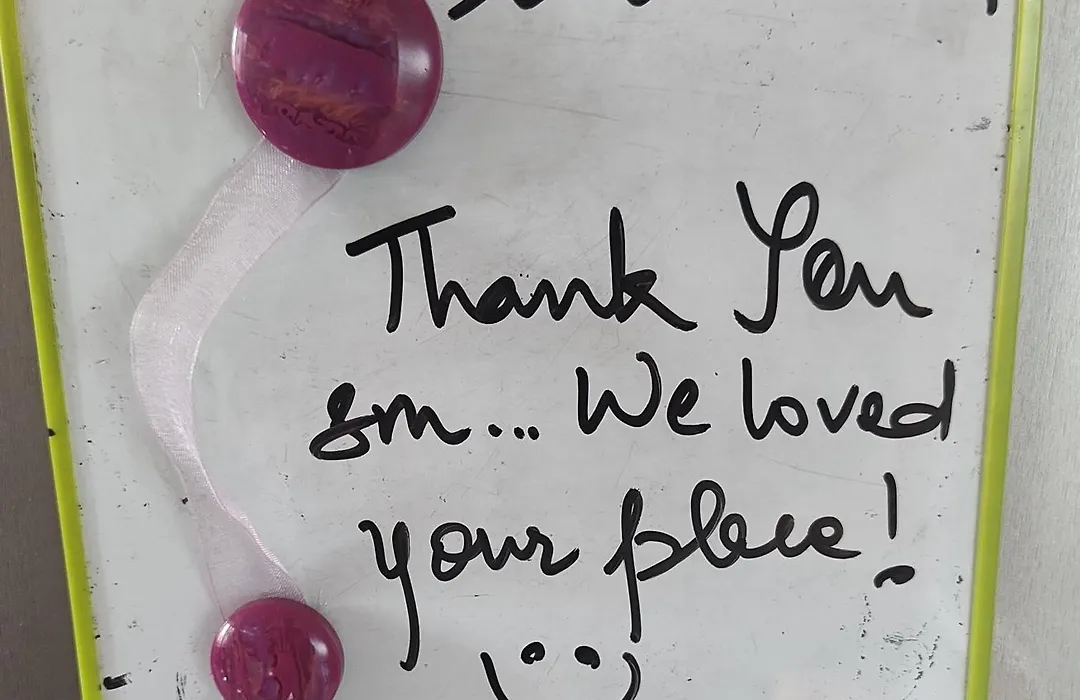 Thank You
sm... We loved
your place!